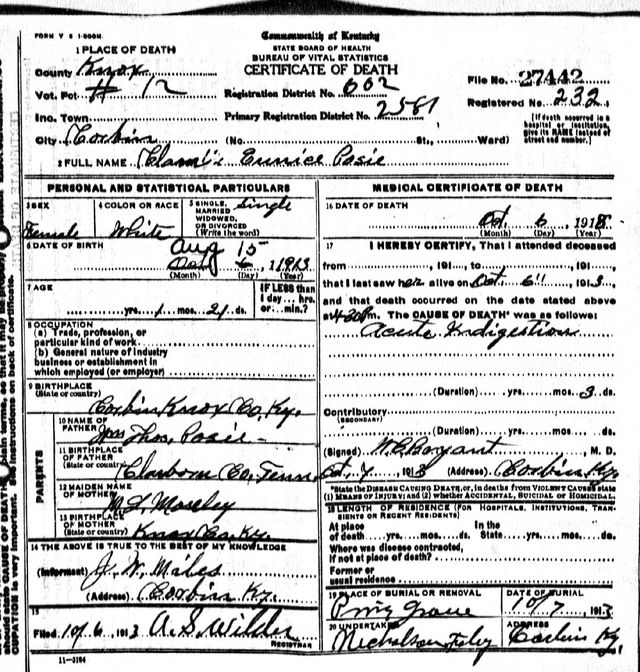 FORM V S 1-500M.
Commonwealth of Kentucky
STATE BOARD OF HEALTH
BUREAU OF VITAL STATISTICS
CERTIFICATE OF DEATH
1 PLACE OF DEATH
County Knox
Vot. Pct # 12
Inc. Town
City Corbin (No. St., Ward)
Registration District No. 602
Primary Registration District No. 2581
File No. 27442
Registered No. 232
[If death occurred in a hospital or institution, give its NAME instead of street and number.]
2 FULL NAME Eunice Posie
PERSONAL AND STATISTICAL PARTICULARS
3 SEX Female
4 COLOR OR RACE White
5 SINGLE, MARRIED WIDOWED, OR DIVORCED (Write the word) Single
6 DATE OF BIRTH Aug 15
Oct 6, 1913
(Month) (Day) (Year)
7 AGE
yrs. 1 mos. 21 ds.
IF LESS than 1 day... hrs. or... min.?
8 OCCUPATION
(a) Trade, profession, or
particular kind of work
(b) General nature of industry
business or establishment in
which employed (or employer)
9 BIRTHPLACE
(State or country) Corbin Knox Co. Ky.
PARENTS
10 NAME OF FATHER Thos. Posie
11 BIRTHPLACE OF FATHER (State or country) Claborn Co, Tenn
12 MAIDEN NAME OF MOTHER Mosley
13 BIRTHPLACE OF MOTHER (State or country) Knox Co. Ky.
14 THE ABOVE IS TRUE TO THE BEST OF MY KNOWLEDGE
(Informant) J. W. Miles
(Address) Corbin Ky.
15
Filed 10/6, 1913 A. S. Wilder
REGISTRAR
11-3184
MEDICAL CERTIFICATE OF DEATH
16 DATE OF DEATH
Oct 6, 191
(Month) (Day) (Year)
17 I HEREBY CERTIFY, That I attended deceased
from, 191..., to, 191...,
that I last saw her alive on Oct. 6", 1913
and that death occurred on the date stated above
at m. The CAUSE OF DEATH* was as follows:
Acute Indigestion
(Duration) yrs. mos. 3 ds.
Contributory
(SECONDARY)
(Duration) yrs. mos. ds.
(Signed) W. C. Bryant, M. D.
Oct. 7, 1913 (Address) Corbin Ky.
*State the DISEASE CAUSING DEATH, or, in deaths from VIOLENT CAUSES state
(1) MEANS OF INJURY; and (2) whether ACCIDENTAL, SUICIDAL OR HOMICIDAL.
18 LENGTH OF RESIDENCE (FOR HOSPITALS, INSTITUTIONS, TRANSIENTS OR RECENT RESIDENTS)
At place of death yrs. mos. ds. In the State yrs. mos. ds.
Where was disease contracted,
if not at place of death?
Former or
usual residence
19 PLACE OF BURIAL OR REMOVAL Grove
DATE OF BURIAL 10/7, 1913
20 UNDERTAKER Nicholson
ADDRESS Corbin Ky.